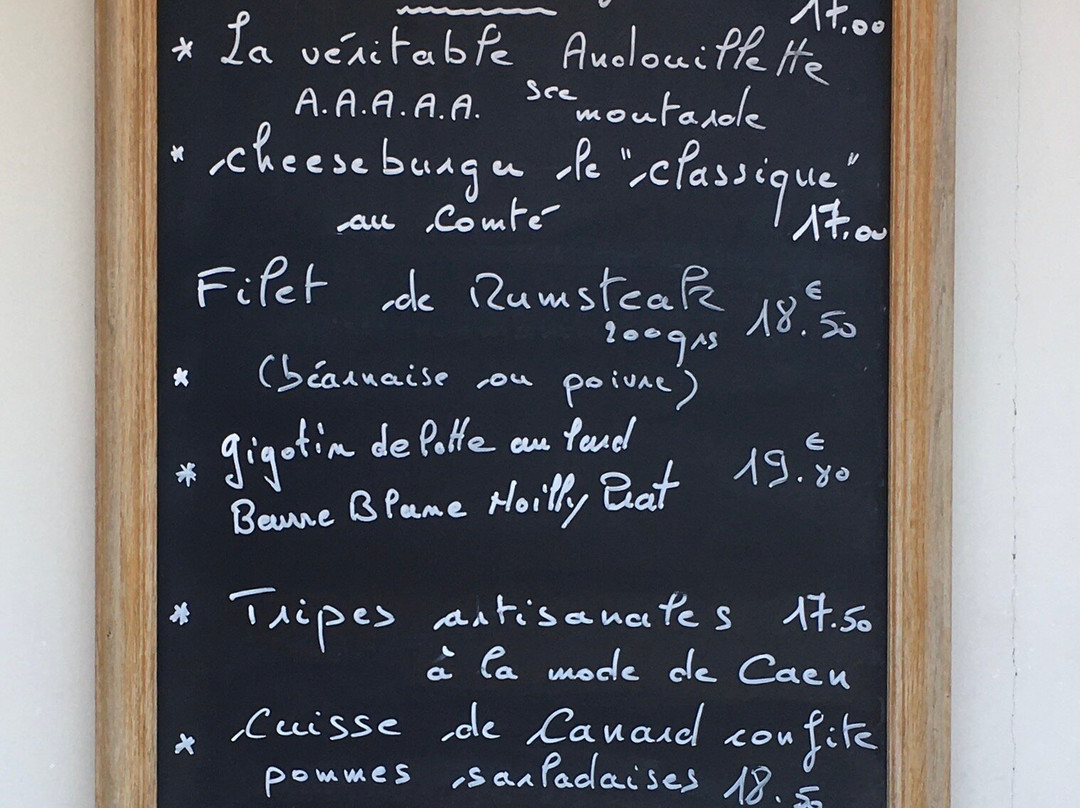 17.00
* La véritable Andouillette
A.A.A.A.A. sce moutarde
* cheeseburger le "classique"
au Comté 17.00
Filet de Rumsteak
200grs 18.€50
* (béarnaise ou poivre)
* gigotin de lotte au lard 19.€80
Beurre Blanc Noilly Prat
* Tripes artisanales 17.50
à la mode de Caen
* Cuisse de Canard confite
pommes sarladaises 18.50